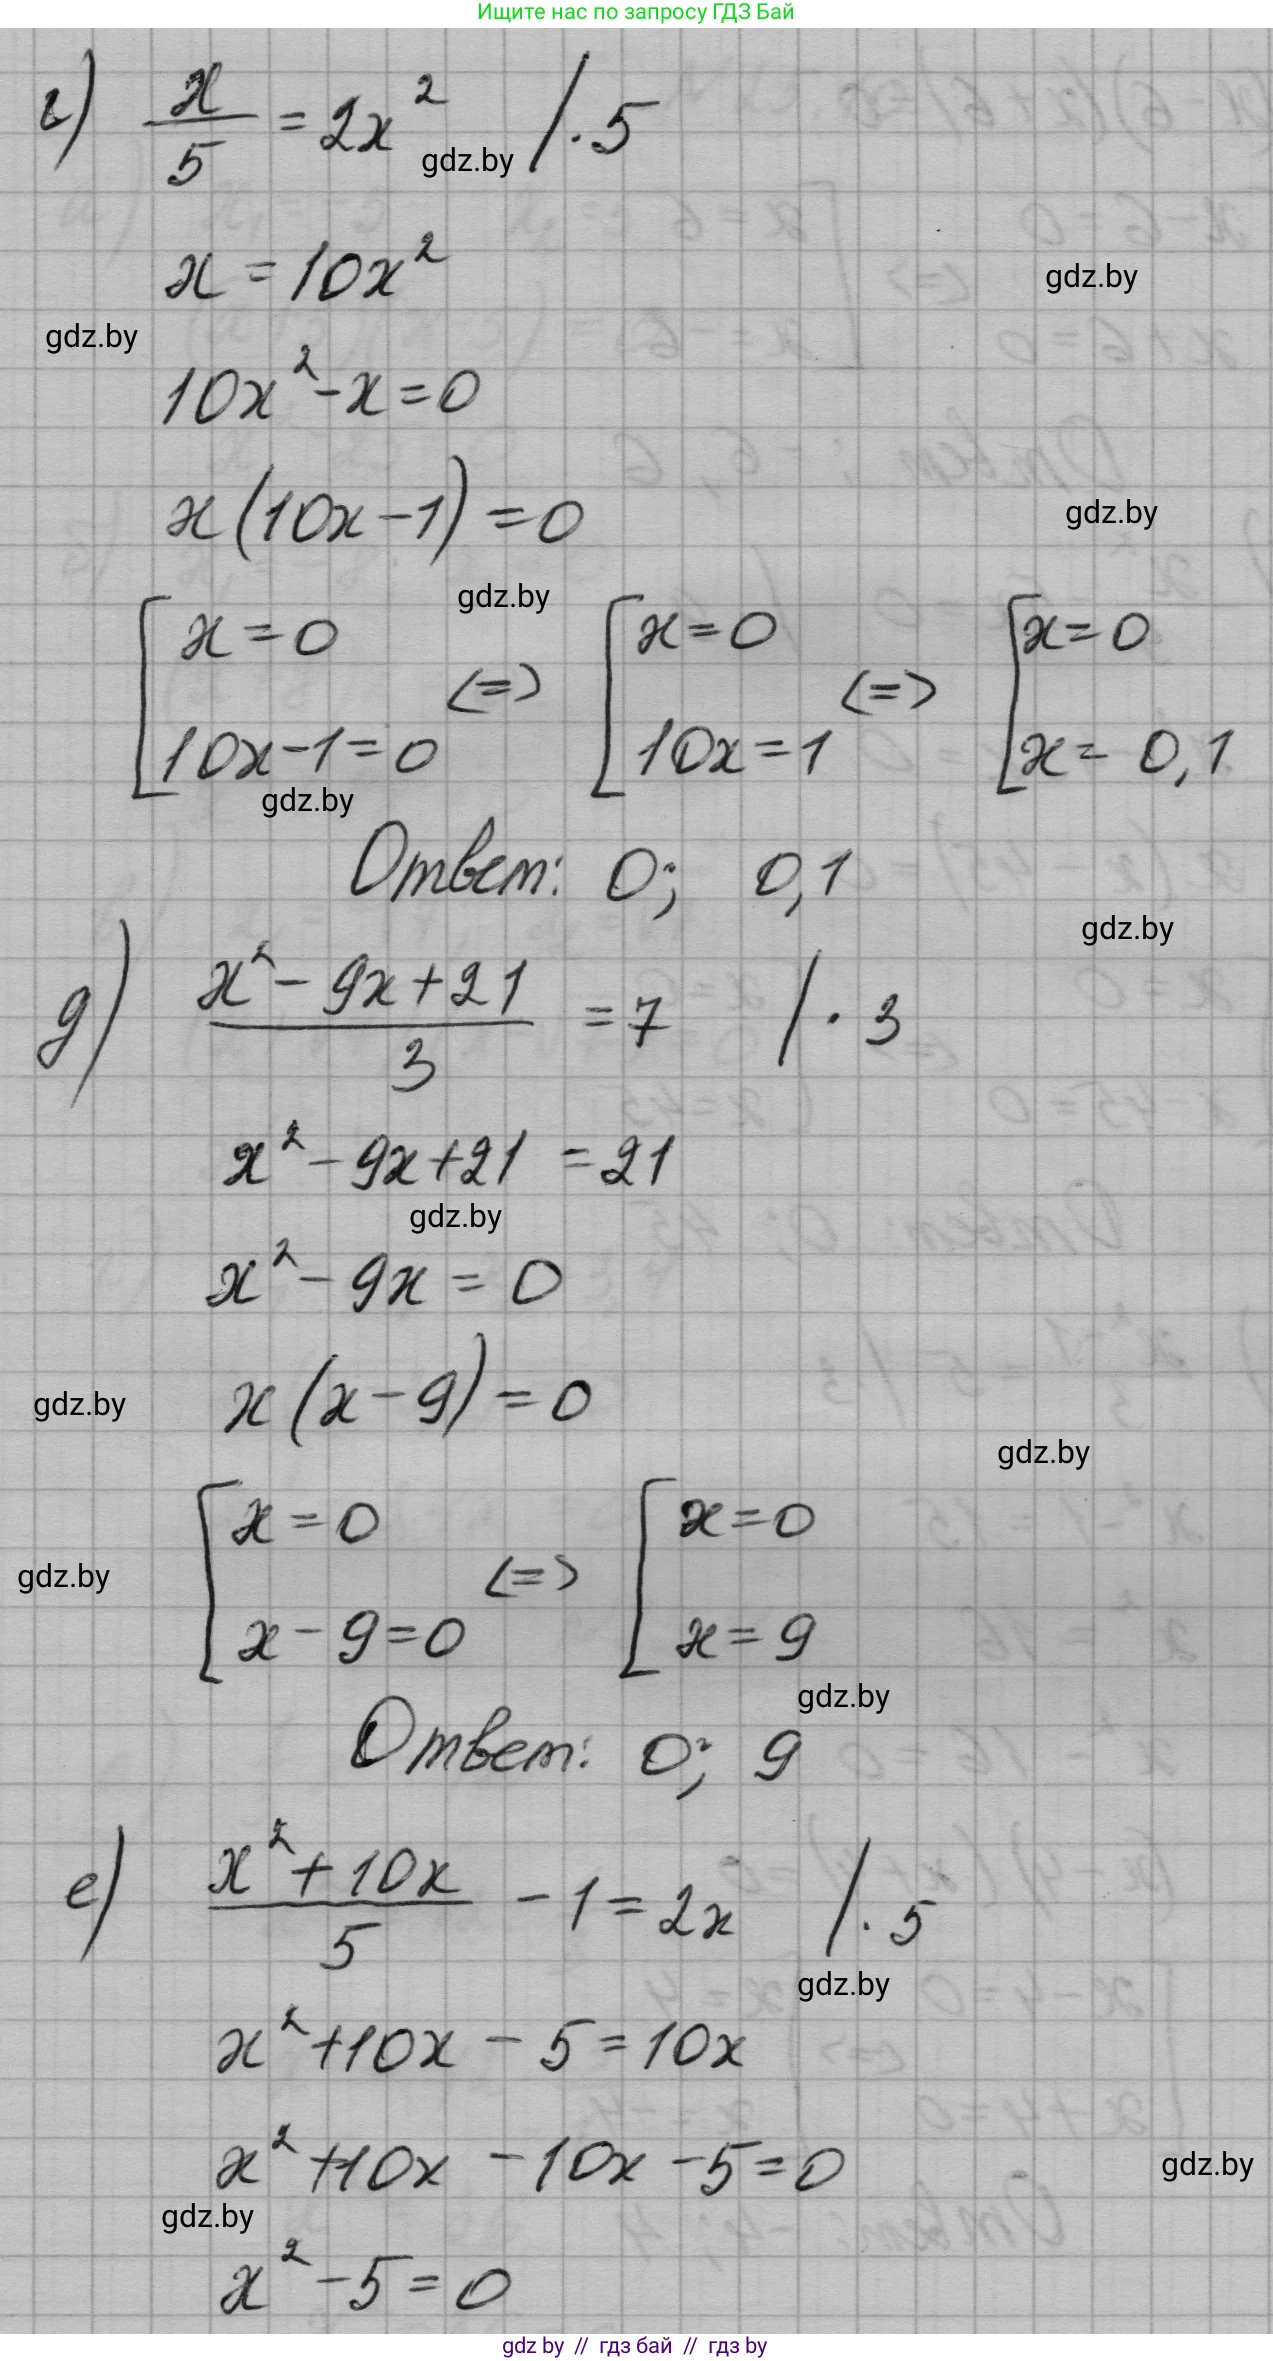 Ищите нас по запросу ГДЗ Бай
г) x/5 = 2x² /·5
gdz.by
x = 10x²
gdz.by
gdz.by
10x² - x = 0
x(10x-1) = 0
gdz.by
gdz.by
[x = 0 <=> [x = 0 <=> [x = 0
[10x-1 = 0 [10x = 1 [x = 0,1
gdz.by
Ответ: 0; 0,1
gdz.by
д) x² - 9x + 21 / 3 = 7 /·3
x² - 9x + 21 = 21
gdz.by
x² - 9x = 0
x(x-9) = 0
gdz.by
gdz.by
[x = 0 <=> [x = 0
gdz.by
[x - 9 = 0 [x = 9
gdz.by
Ответ: 0; 9
е) x² + 10x / 5 - 1 = 2x /·5
gdz.by
x² + 10x - 5 = 10x
x² + 10x - 10x - 5 = 0
gdz.by
gdz.by
x² - 5 = 0
gdz by // гдз бай // гдз by